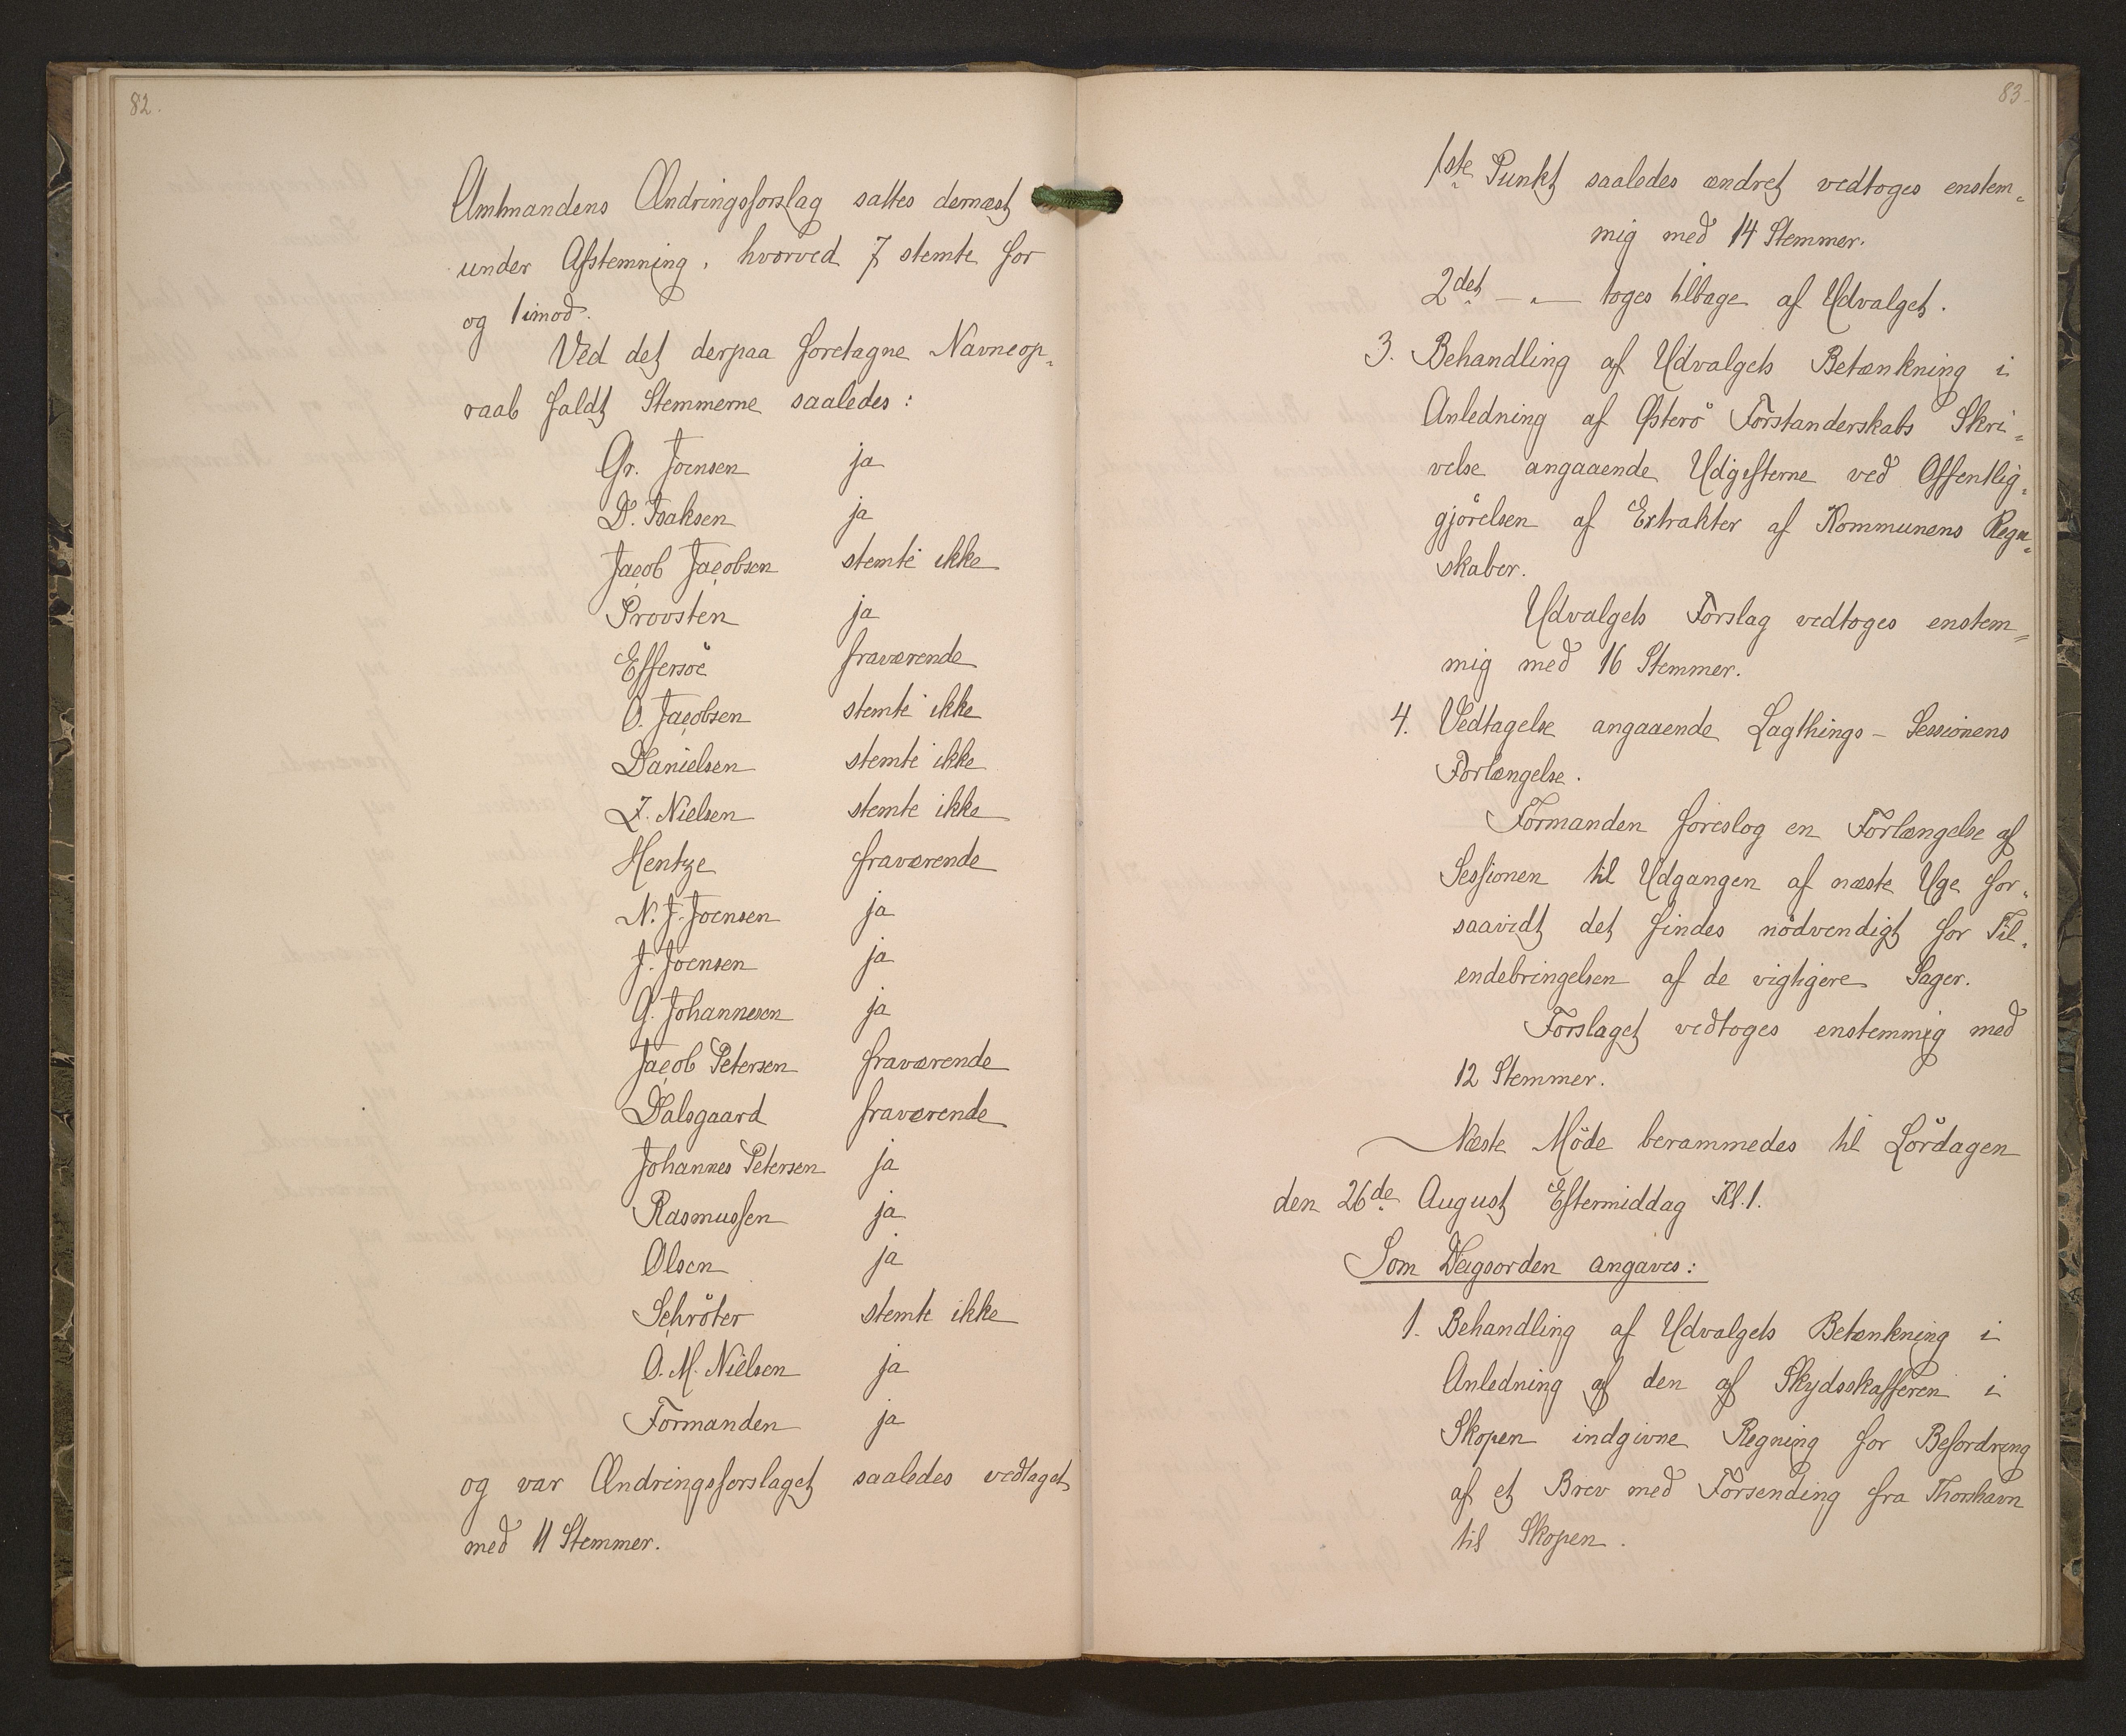 82.
Amtmandens Ændringsforslag sattes dernæst
under Afstemning, hvorved 7 stemte for
og 1 imod.
Ved det derpaa foretagne Navneop-
raab faldt Stemmerne saaledes:
Gr. Joensen ja
D. Isaksen ja
Jacob Jacobsen stemte ikke
Provsten ja
Effersöe fraværende
O. Jacobsen stemte ikke
Danielsen stemte ikke
Z. Nielsen stemte ikke
Hentze fraværende
N. J. Joensen ja
J. Joensen ja
G. Johannesen ja
Jacob Petersen fraværende
Dalsgaard fraværende
Johannes Petersen ja
Rasmussen ja
Olsen ja
Schröter stemte ikke
O. M. Nielsen ja
Formanden ja
og var Ændringsforslaget saaledes vedtaget
med 11 Stemmer.
83.
1ste Punkt saaledes ændret vedtoges enstem-
mig med 14 Stemmer.
2det — " — toges tilbage af Udvalget.
3. Behandling af Udvalgets Betænkning i
Anledning af Österö Forstanderskabs Skri-
velse angaaende Udgifterne ved Offentlig-
gjörelsen af Extrakter af Kommunens Regn-
skaber.
Udvalgets Forslag vedtoges enstem-
mig med 16 Stemmer.
4. Vedtagelse angaaende Lagthings-Sessionens
Forlængelse.
Formanden foreslog en Forlængelse af
Sessionen til Udgangen af næste Uge for-
saavidt det findes nödvendigt for Til-
endebringelsen af de vigtigere Sager.
Forslaget vedtoges enstemmig med
12 Stemmer.
Næste Möde berammedes til Lördagen
den 26de August Eftermiddag Kl. 1.
Som Dagsorden angaves:
1. Behandling af Udvalgets Betænkning i
Anledning af den af Skydsskafferen i
Skopen indgivne Regning for Befordring
af et Brev med Forsending fra Thorshavn
til Skopen.